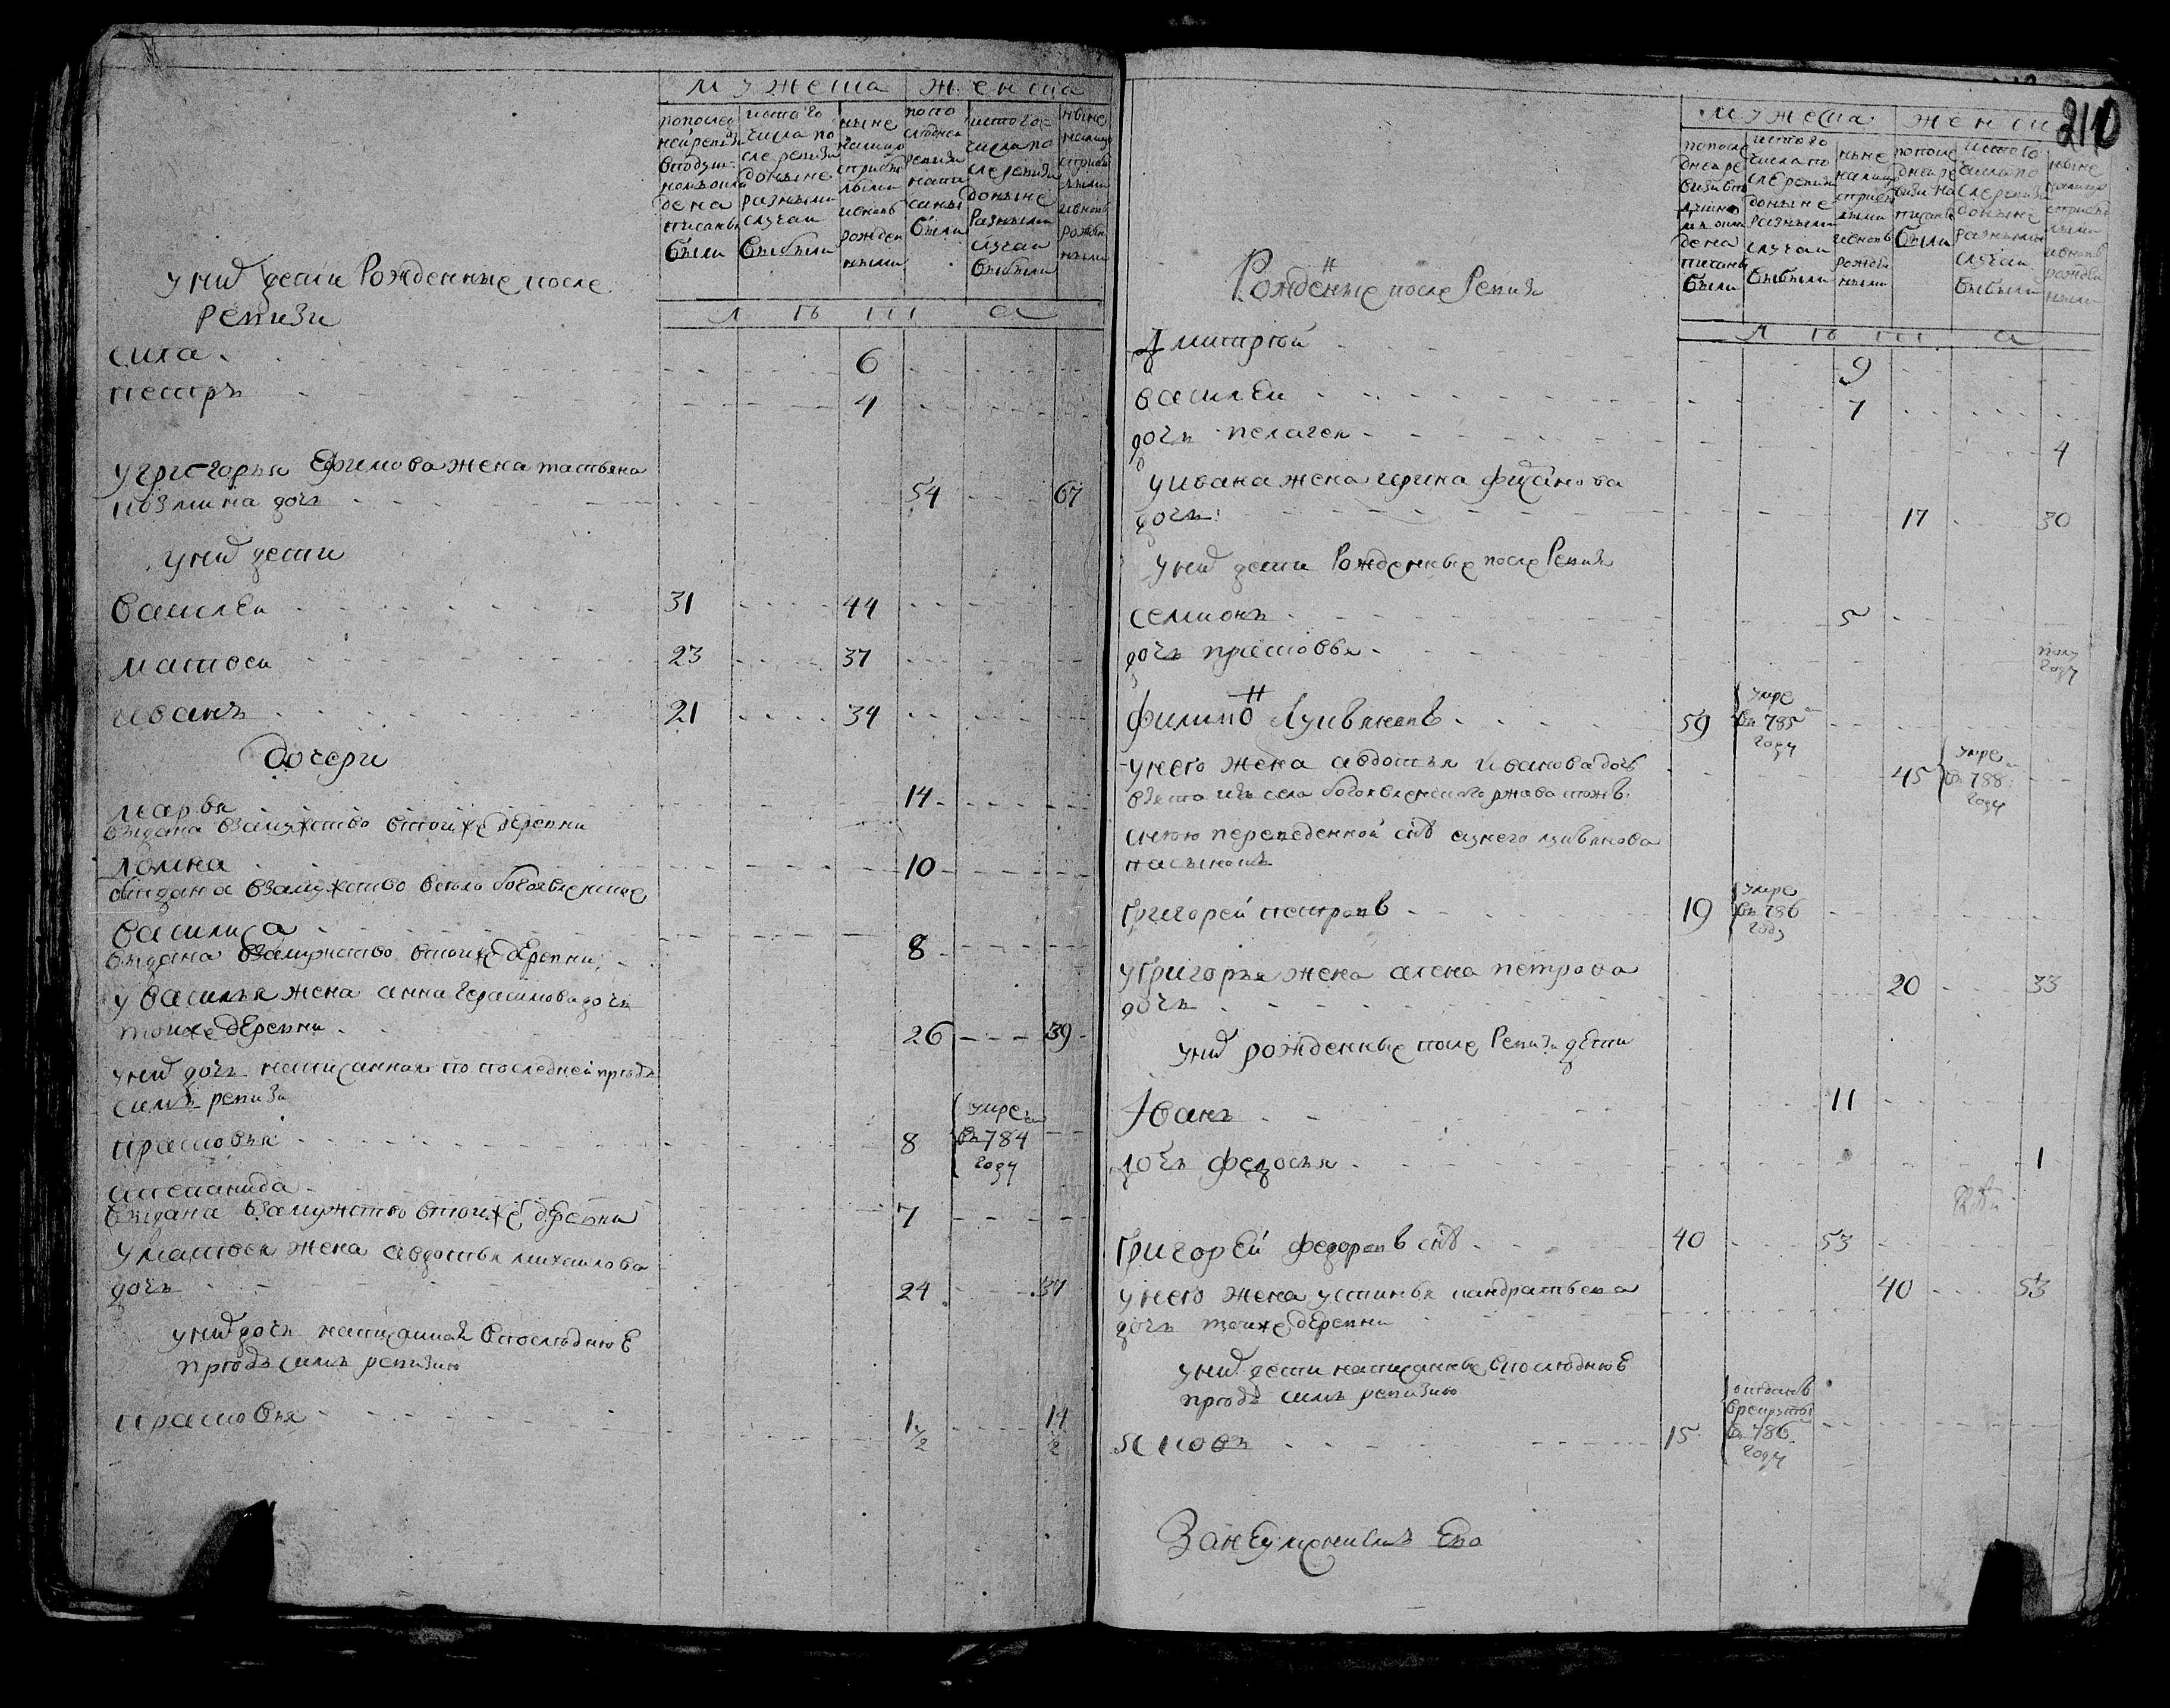 мужеска женска
по последней ревизии в подушном окладе написаны были
ис того числа после ревизии до ныне разными случаи выбыли
ныне налицо с прибылыми и вновь рожденными
по последней ревизии написаны были
ис того числа после ревизии до ныне разными случаи выбыли
ныне налицо с прибылыми и вновь рожденными
у них дети Рожденные после
Ревизи
л ѣ т а
сила 6
петръ 4
у григорья Ефимова жена татьяна
козмина дочь 54 67
у них дети
василеи 31 44
матвеи 23 37
иванъ 21 34
дочери
марья 14
выдана взамужство втоиже дЕревни
домна 10
выдана взамужство всело богоявленское
василиса 8
выдана взамужство втоиже дЕревни
у василья жена анна герасимова дочь
тоиже дЕревни 26 39
у них дочь написанная по последней предъ
симъ ревизи
прасковья 8 умре въ 784 году
степанида
выдана взамужство втоиже дЕревни 7
у матвея жена авдотья михаилова
дочь 24 37
у них дочь написанная в последнюЕ
предъ симъ ревизию
прасковья 1 1/2 14 1/2
210
мужеска женска
по последней ревизии в подушном окладе написаны были
ис того числа после ревизии до ныне разными случаи выбыли
ныне налицо с прибылыми и вновь рожденными
по последней ревизии написаны были
ис того числа после ревизии до ныне разными случаи выбыли
ныне налицо с прибылыми и вновь рожденными
Рожденные после Ревизи
л ѣ т а
Дмитрей 9
василеи 7
дочь пелагея 4
у ивана жена ирина
дочь 17 30
у них дети Рожденные после Ревизи
семионъ 5
дочь прасковья полугоду
филипъ лукьяновъ 59 умре въ 785 году
у него жена авдотья Иванова дочь 45 умре въ 788 году
взята изъ села богоявленского
снею переведенной снъ лукьянова
пасынокъ
григорей петровъ 19 умре въ 786 году
у григорья жена алена петрова
дочь 20 33
у них рожденные после Ревизи дети
Иванъ 11
дочь федосья 1
григорЕй федоровъ снъ 40 53
у него жена устинья кандратьева 40 53
дочь тоиже дЕревни
у них дети написанные в последнюЕ
предъ симъ ревизию
яковъ 15 отданъ врекруты въ 786 году